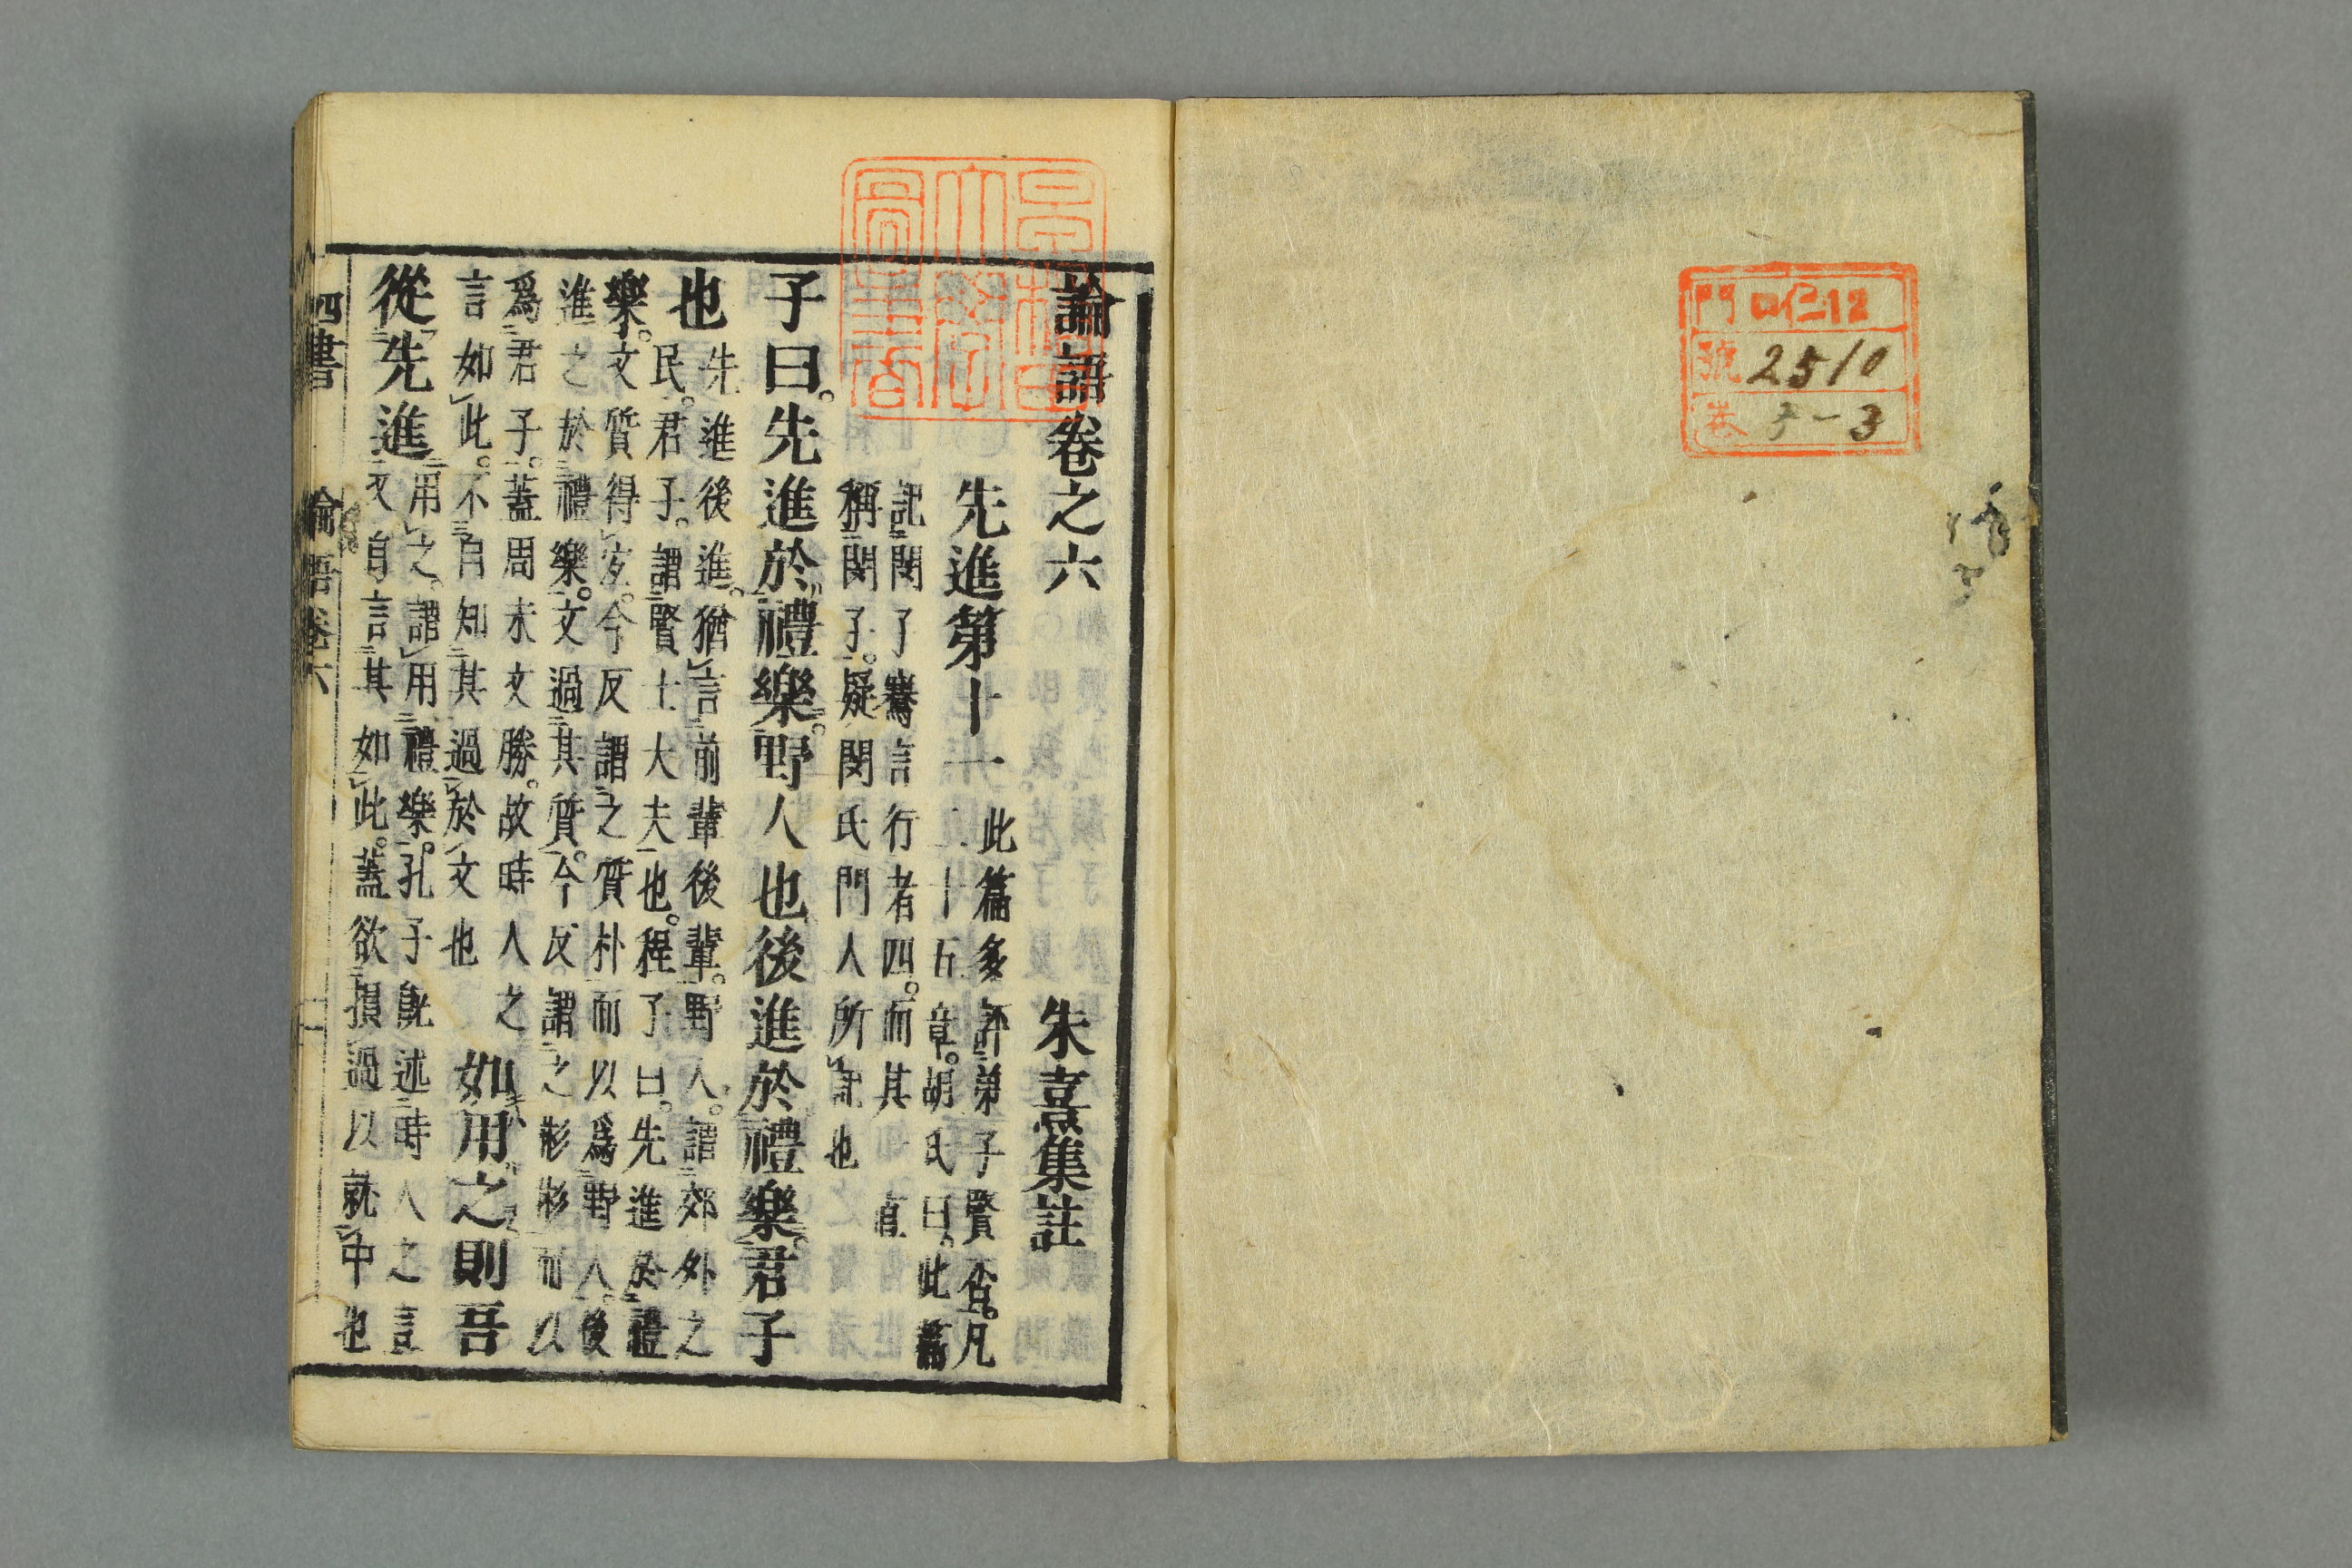 門 ロ仁12
號 2510
卷 5-3
論語卷之六
朱熹集註
先進第十一
此篇多評弟子賢否。凡
二十五章。胡氏曰。此篇
記閔子騫言行者四。而其一直
稱閔子。疑閔氏門人所記也
子曰。先進於禮樂。野人也後進於禮樂。君子
也
先進後進。猶言前輩後輩。野人。謂郊外之
民。君子。謂賢士大夫也。程子曰。先進於禮
樂。文質得宜。今反謂之質朴而以爲野人。後
進之於禮樂。文過其質。今反謂之彬彬而以
爲君子。蓋周末文勝。故時人之
言如此。不自知其過於文也
如用之則吾
從先進
用之。謂用禮樂。孔子既述時人之言
又自言其如此。蓋欲損過以就中也
四書 論語卷六 一